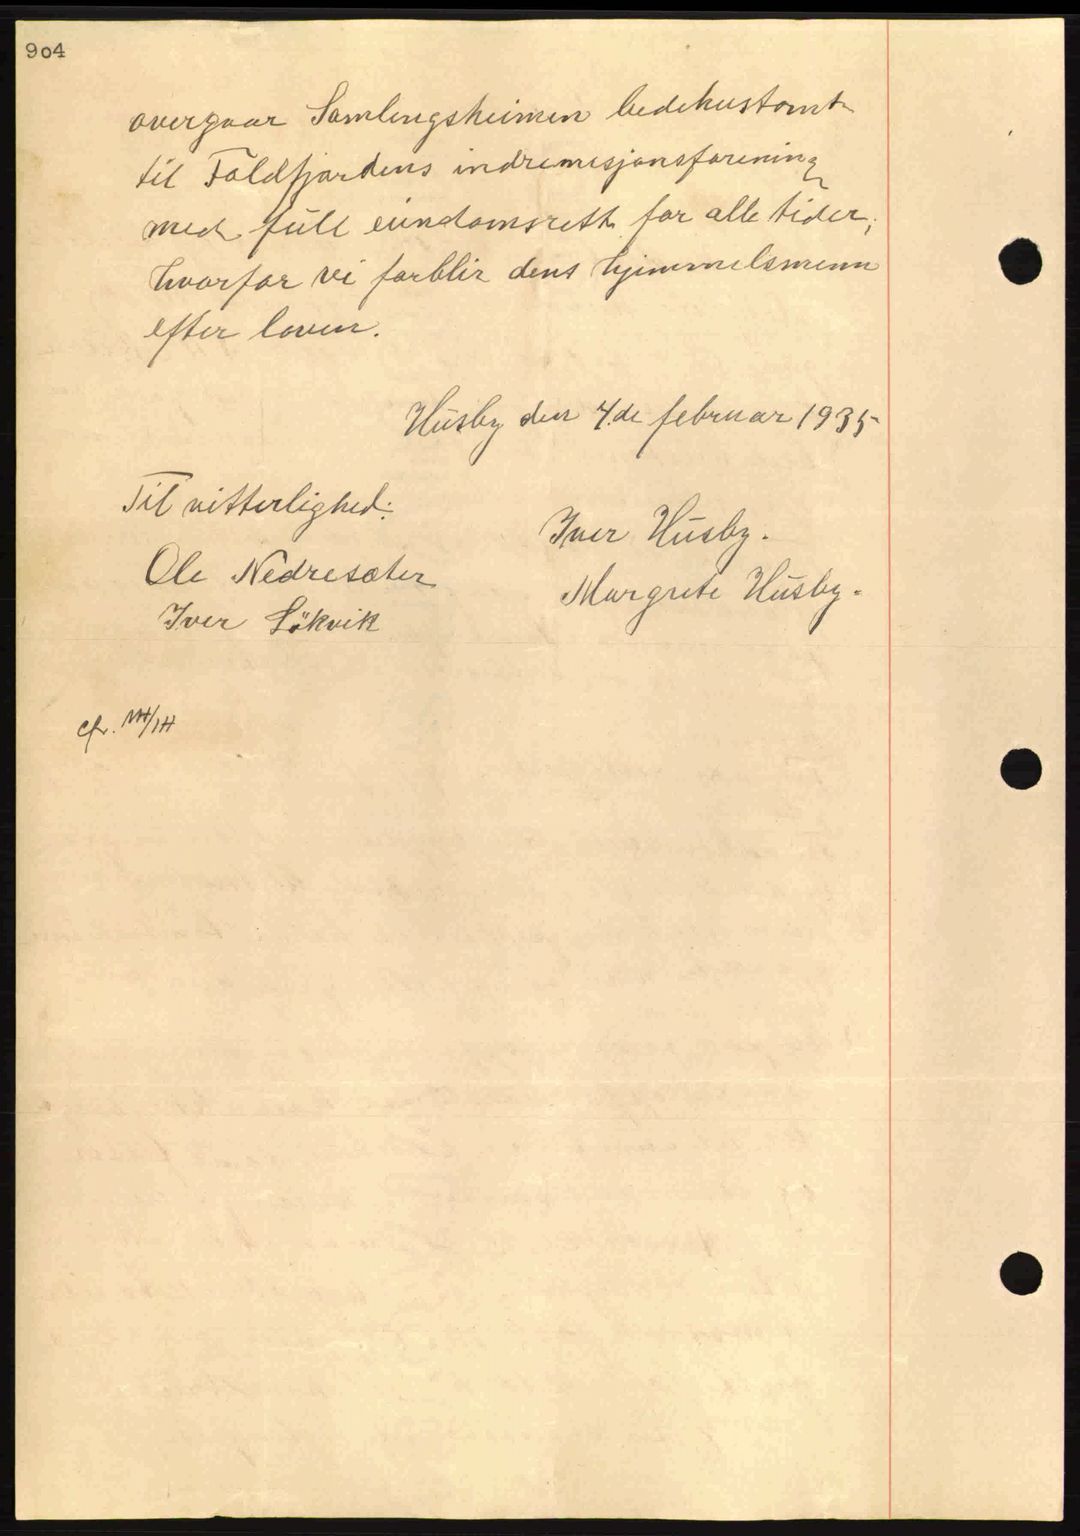 904
overgaar Samlingsheimen bedehustomt
til Foldfjordens indremisjonsforening
med full eiendomsrett for alle tider;
hvorfor vi forblir dens hjemmelsmenn
efter loven.
Husby den 4.de februar 1935
Til vitterlighed:
Iver Husby.
Ole Nedresæter
Margrete Husby.
Iver Løkvik